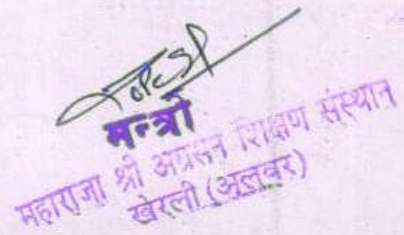 मन्त्री
महाराजा श्री अग्रसेन शिक्षण संस्थान
खेरली (अलवर)